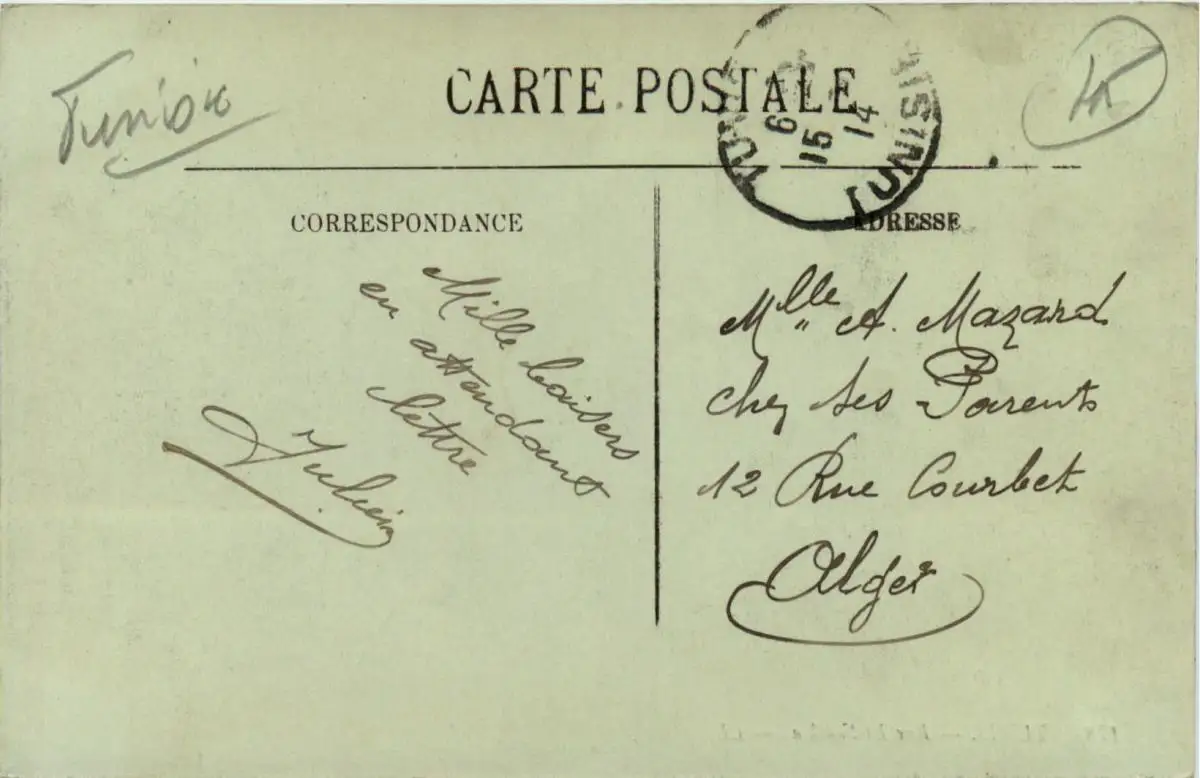 Tunisie
CARTE POSTALE
TUNIS
6
15
14
(TUNISIE)
CORRESPONDANCE
ADRESSE
Mille baisers
en attendant
lettre
Julien
Mlle A. Mazard
chez ses Parents
12 Rue Courbet
Alger